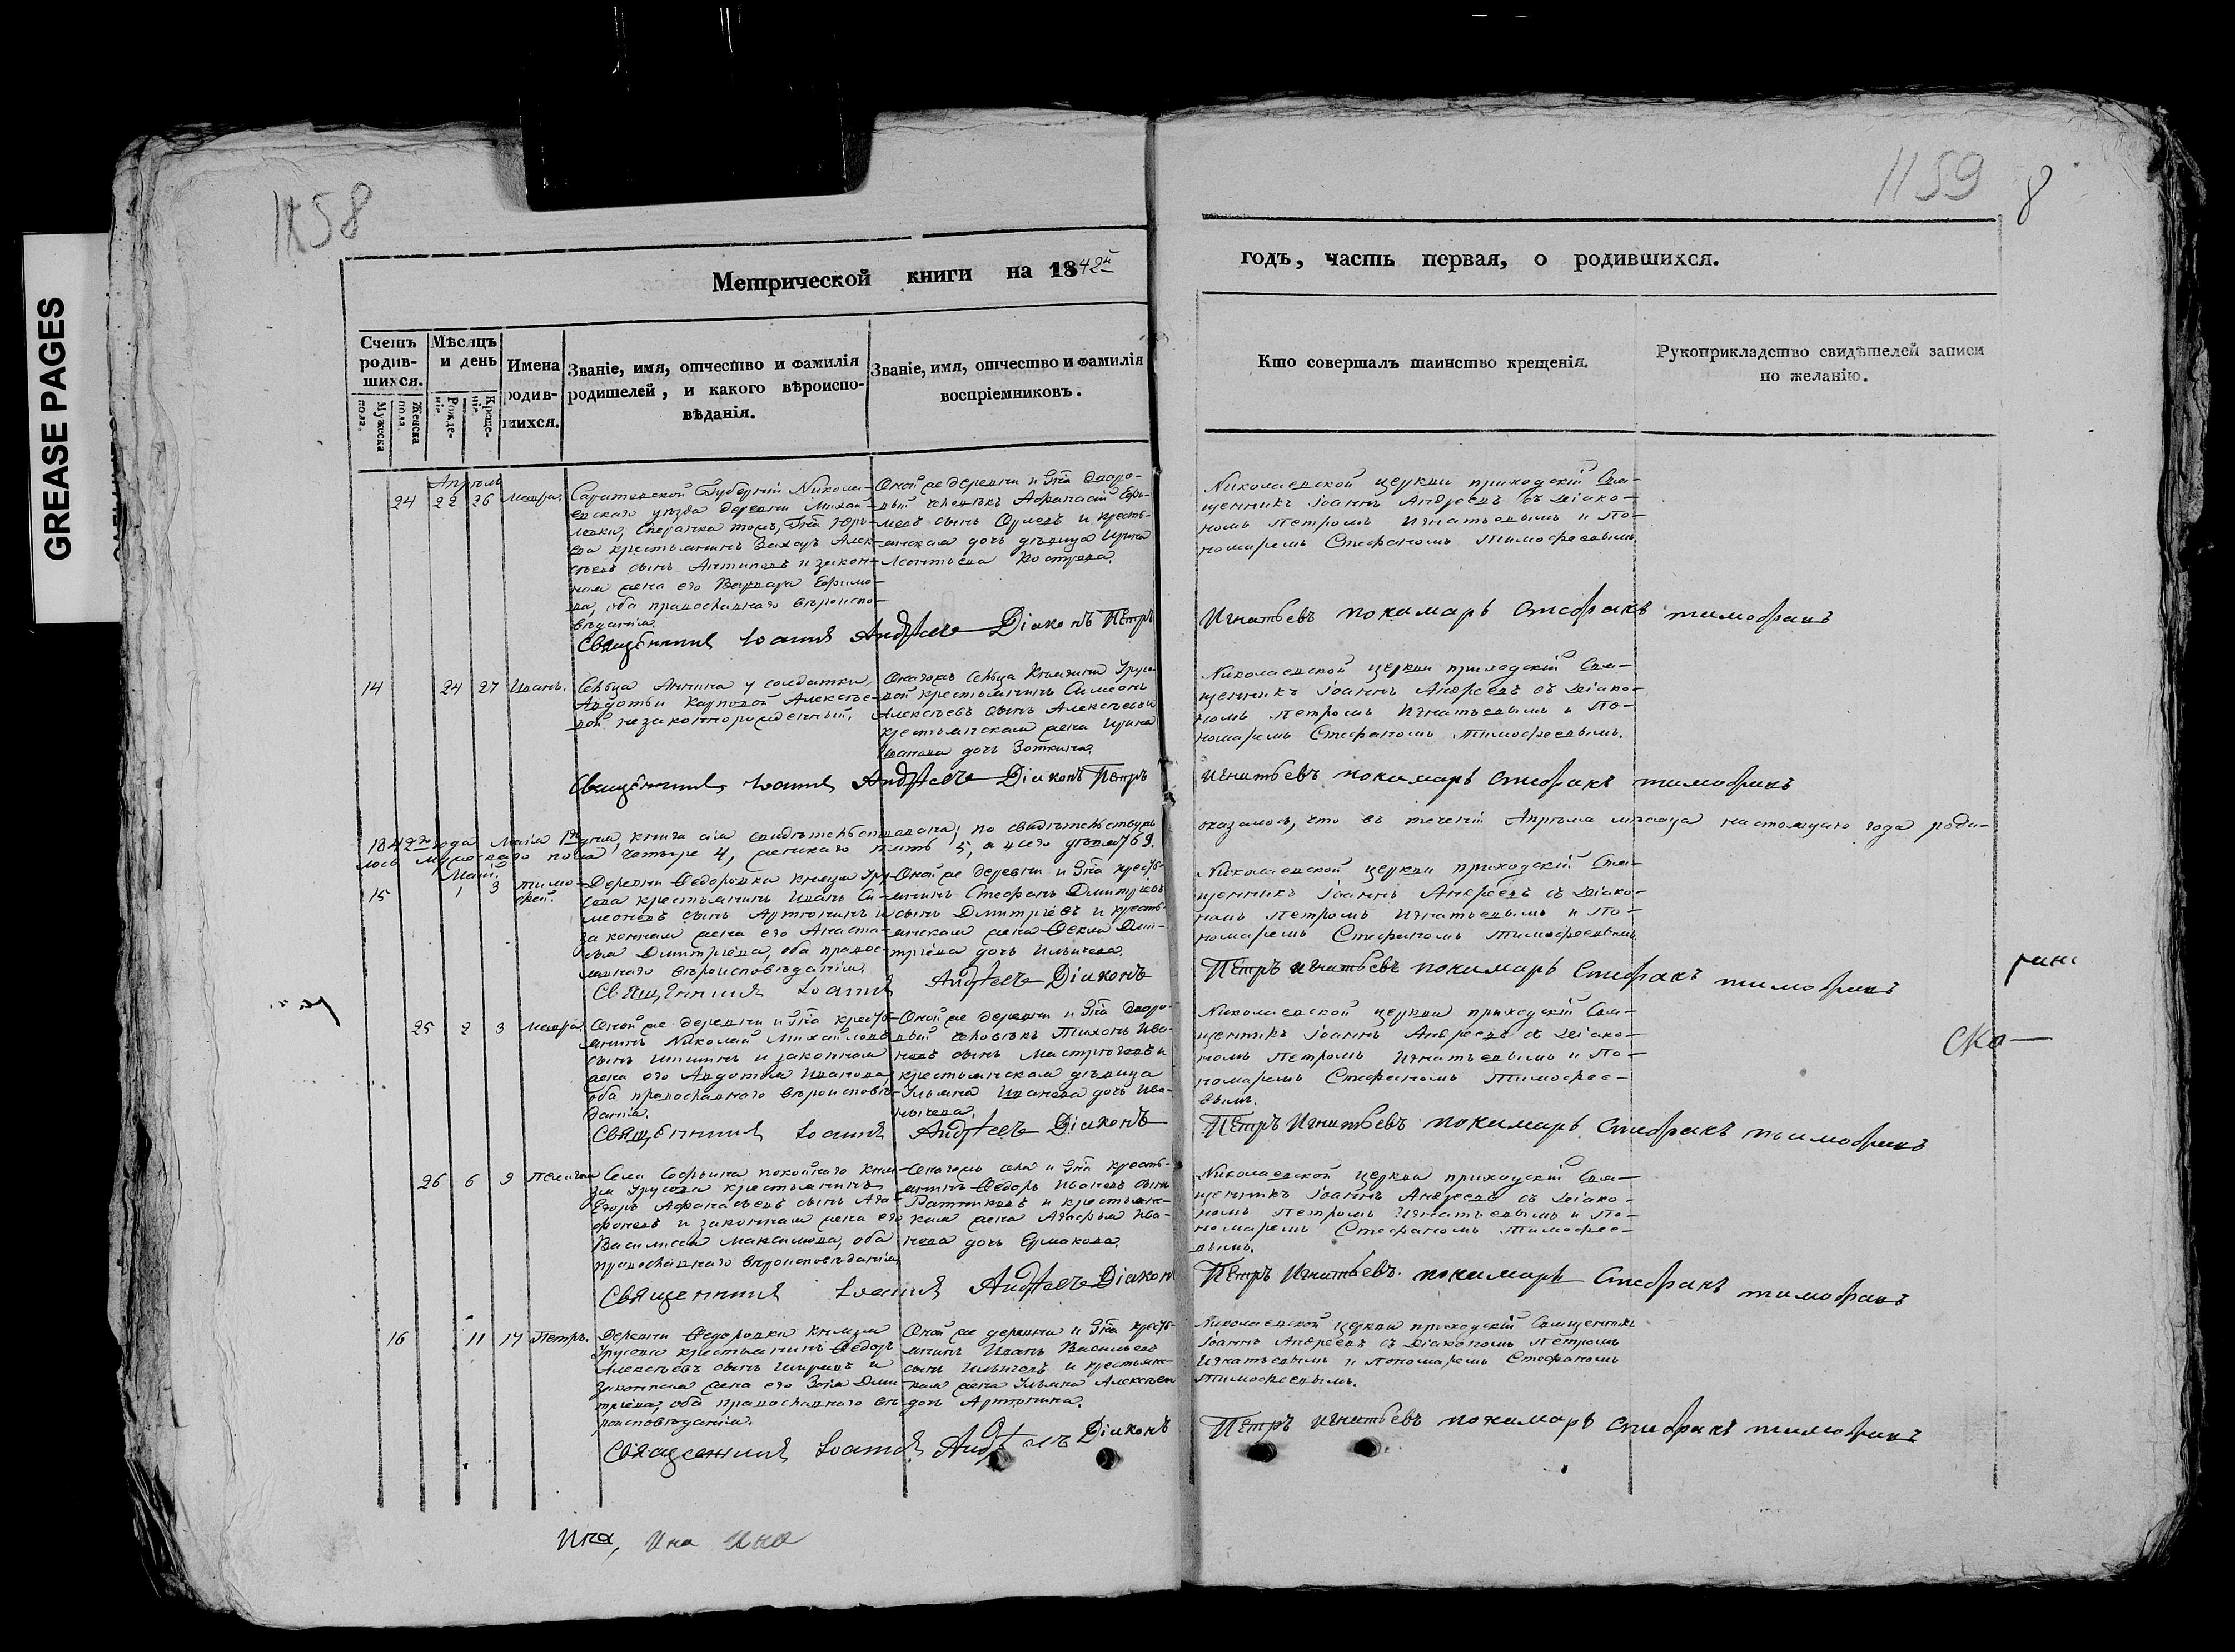 GREASE PAGES
1158
1159
8
Метрической книги на 1842й
годъ, часть первая, о родившихся.
Счетъ родив-шихся.
Мужеска пола.
Женска пола.
Мѣсяцъ и день
Рожде-нія.
Креще-нія.
Имена родив-шихся.
Званіе, имя, отчество и фамилія
родителей, и какого вѣроиспо-
вѣданія.
Званіе, имя, отчество и фамилія
воспріемниковъ.
Кто совершалъ таинство крещенія.
Рукоприкладство свидѣтелей записи
по желанію.
Апрѣль
24 22 26 Мавра.
Саратовской Губерніи Никола-
евскаго уѣзда деревни Михай-
ловки,
крестьянинъ Захаръ Алек-
сѣевъ сынъ Антиповъ и закон-
ная жена его Варвара Ефимо-
ва, оба православнаго вѣроиспо-
вѣданія.
Оной же деревни и Гна дворо-
вый человѣкъ Афанасій Ефи-
мовъ сынъ Орловъ и кресть-
янская дочь дѣвица Ирина
Леонтьева Кострова.
Николаевской церкви приходскій Свя-
щенникъ Іоаннъ Андреевъ съ Діако-
номъ Петромъ Игнатьевымъ и По-
номаремъ Стефаномъ Тимофеевымъ.
Священникъ Іоаннъ Андреевъ Діаконъ Петръ
Игнатьевъ пономарь Стефанъ Тимофеевъ
14 24 27 Иванъ.
Сельца Аннина у солдатки
Авдотьи Карповой Алексѣе-
вой незаконнорожденный.
Онагожъ сельца Княгини Урусо-
вой крестьянинъ Симеонъ
Алексѣевъ сынъ Алексѣевъ и
крестьянская жена Ирина
Иванова дочь Зоткина.
Николаевской церкви приходскій Свя-
щенникъ Іоаннъ Андреевъ съ Діако-
номъ Петромъ Игнатьевымъ и По-
номаремъ Стефаномъ Тимофеевымъ.
Священникъ Іоаннъ Андреевъ Діаконъ Петръ
Игнатьевъ пономарь Стефанъ Тимофеевъ
1842го года Маія 1го дня, книга сія свидѣтельствована; по свидѣтельству
оказалось, что въ теченіи Апрѣля мѣсяца настоящаго года роди-
лось мужескаго пола четыре 4, женскаго пять 5, а всего девять 9.
Маій.
15 1 3 Тимо-
фей.
Деревни Федоровки Князя Уру-
сова крестьянинъ Иванъ Си-
меоновъ сынъ Артюнинъ и
законная жена его Анаста-
сья Димитріева, оба правос-
лавнаго вѣроисповѣданія.
Оной же деревни и Гна кресть-
янинъ Стефанъ Димитріевъ
сынъ Димитріевъ и кресть-
янская жена Фекла Дми-
тріева дочь Ильичева.
Николаевской церкви приходскій Свя-
щенникъ Іоаннъ Андреевъ съ Діако-
номъ Петромъ Игнатьевымъ и По-
номаремъ Стефаномъ Тимофеевымъ.
Священникъ Іоаннъ Андреевъ Діаконъ
Петръ Игнатьевъ пономарь Стефанъ Тимофеевъ
25 2 3 Мавра.
Оной же деревни и Гна кресть-
янинъ Николай Михайловъ
сынъ Шишинъ и законная
жена его Авдотья Иванова
оба православнаго вѣроисповѣ-
данія.
Оной же деревни и Гна дворо-
вый человѣкъ Тихонъ Ива-
новъ сынъ Мастрюговъ и
крестьянская дѣвица
Ульяна Иванова дочь Ива-
нычева.
Николаевской церкви приходскій Свя-
щенникъ Іоаннъ Андреевъ съ Діако-
номъ Петромъ Игнатьевымъ и По-
номаремъ Стефаномъ Тимофее-
вымъ.
Ско-
Священникъ Іоаннъ Андреевъ Діаконъ
Петръ Игнатьевъ пономарь Стефанъ Тимофеевъ
26 6 9 Пелагія
Села Софьина покойнаго Кня-
зя Урусова крестьянинъ
Егоръ Афанасьевъ сынъ Ага-
фоновъ и законная жена его
Василиса Максимова, оба
православнаго вѣроисповѣданія.
Онагожъ села и Гна кресть-
янинъ Федоръ Ивановъ сынъ
Ратниковъ и крестьянс-
кая жена Агафья Ива-
нова дочь Ермакова.
Николаевской церкви приходскій Свя-
щенникъ Іоаннъ Андреевъ съ Діако-
номъ Петромъ Игнатьевымъ и По-
номаремъ Стефаномъ Тимофее-
вымъ.
Священникъ Іоаннъ Андреевъ Діаконъ
Петръ Игнатьевъ пономарь Стефанъ Тимофеевъ
16 11 14 Петръ.
Деревни Федоровки Князя
Урусова крестьянинъ Федоръ
Алексѣевъ сынъ Ширяевъ и
законная жена его Зоія Дми-
тріева, оба православнаго вѣ-
роисповѣданія.
Оной же деревни и Гна кресть-
янинъ Иванъ Васильевъ
сынъ Ильичевъ и крестьянс-
кая жена Ульяна Алексѣева
дочь Артюнина.
Николаевской церкви приходскій Священникъ
Іоаннъ Андреевъ съ Діакономъ Петромъ
Игнатьевымъ и Пономаремъ Стефаномъ
Тимофеевымъ.
Священникъ Іоаннъ Андреевъ Діаконъ
Петръ Игнатьевъ пономарь Стефанъ Тимофеевъ
Ина, Ина Ина